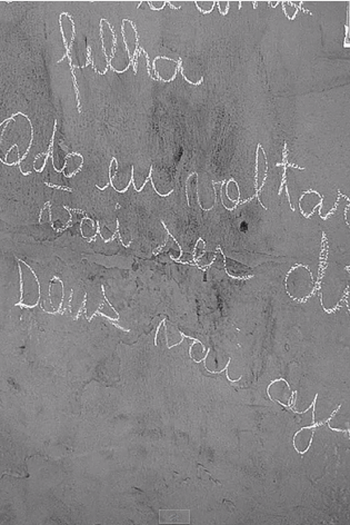 filha
Qdo eu voltar
vai ser di
Deus vai aj